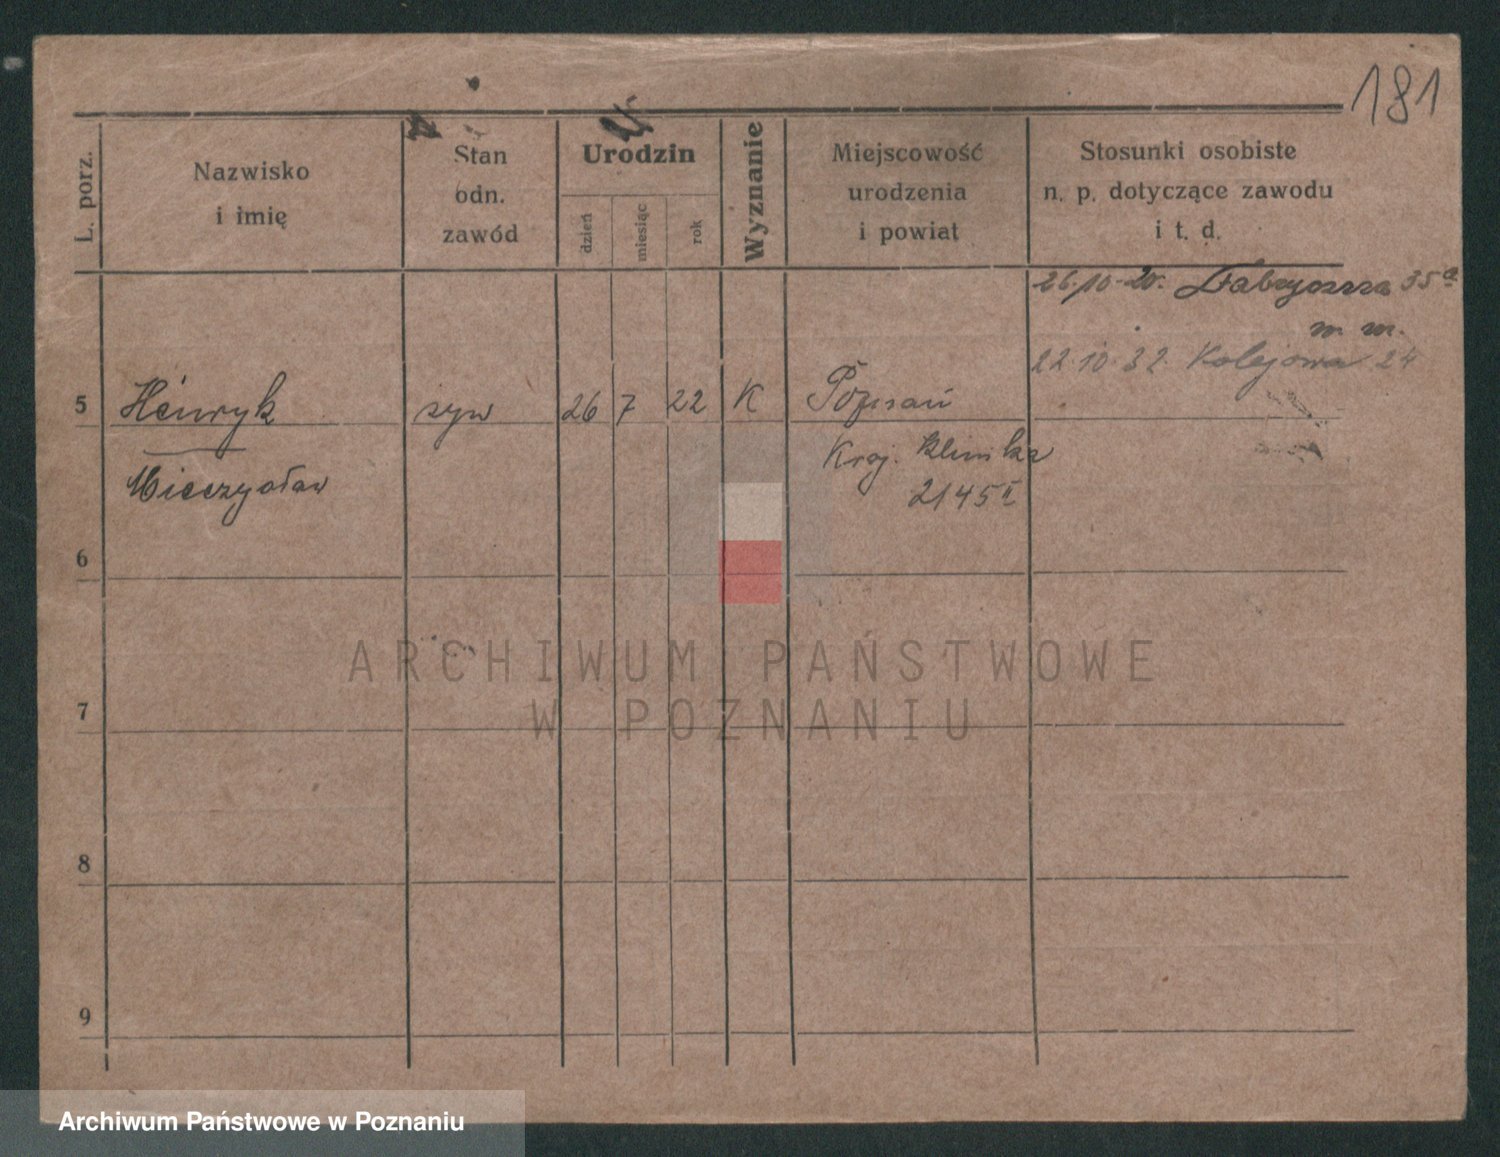 181
L. porz.
Nazwisko
i imię
Stan
odn.
zawód
Urodzin
dzień
miesiąc
rok
Wyznanie
Miejscowość
urodzenia
i powiat
Stosunki osobiste
n. p. dotyczące zawodu
i t. d.
26.10.20. 35a
m. m.
22.10.32. Kolejowa 24
5 Henryk syn 26 7 22 K Poznań
Mieczysław
Kraj. Klinika
2145 II
6
7
8
9
ARCHIWUM PAŃSTWOWE
W POZNANIU
Archiwum Państwowe w Poznaniu